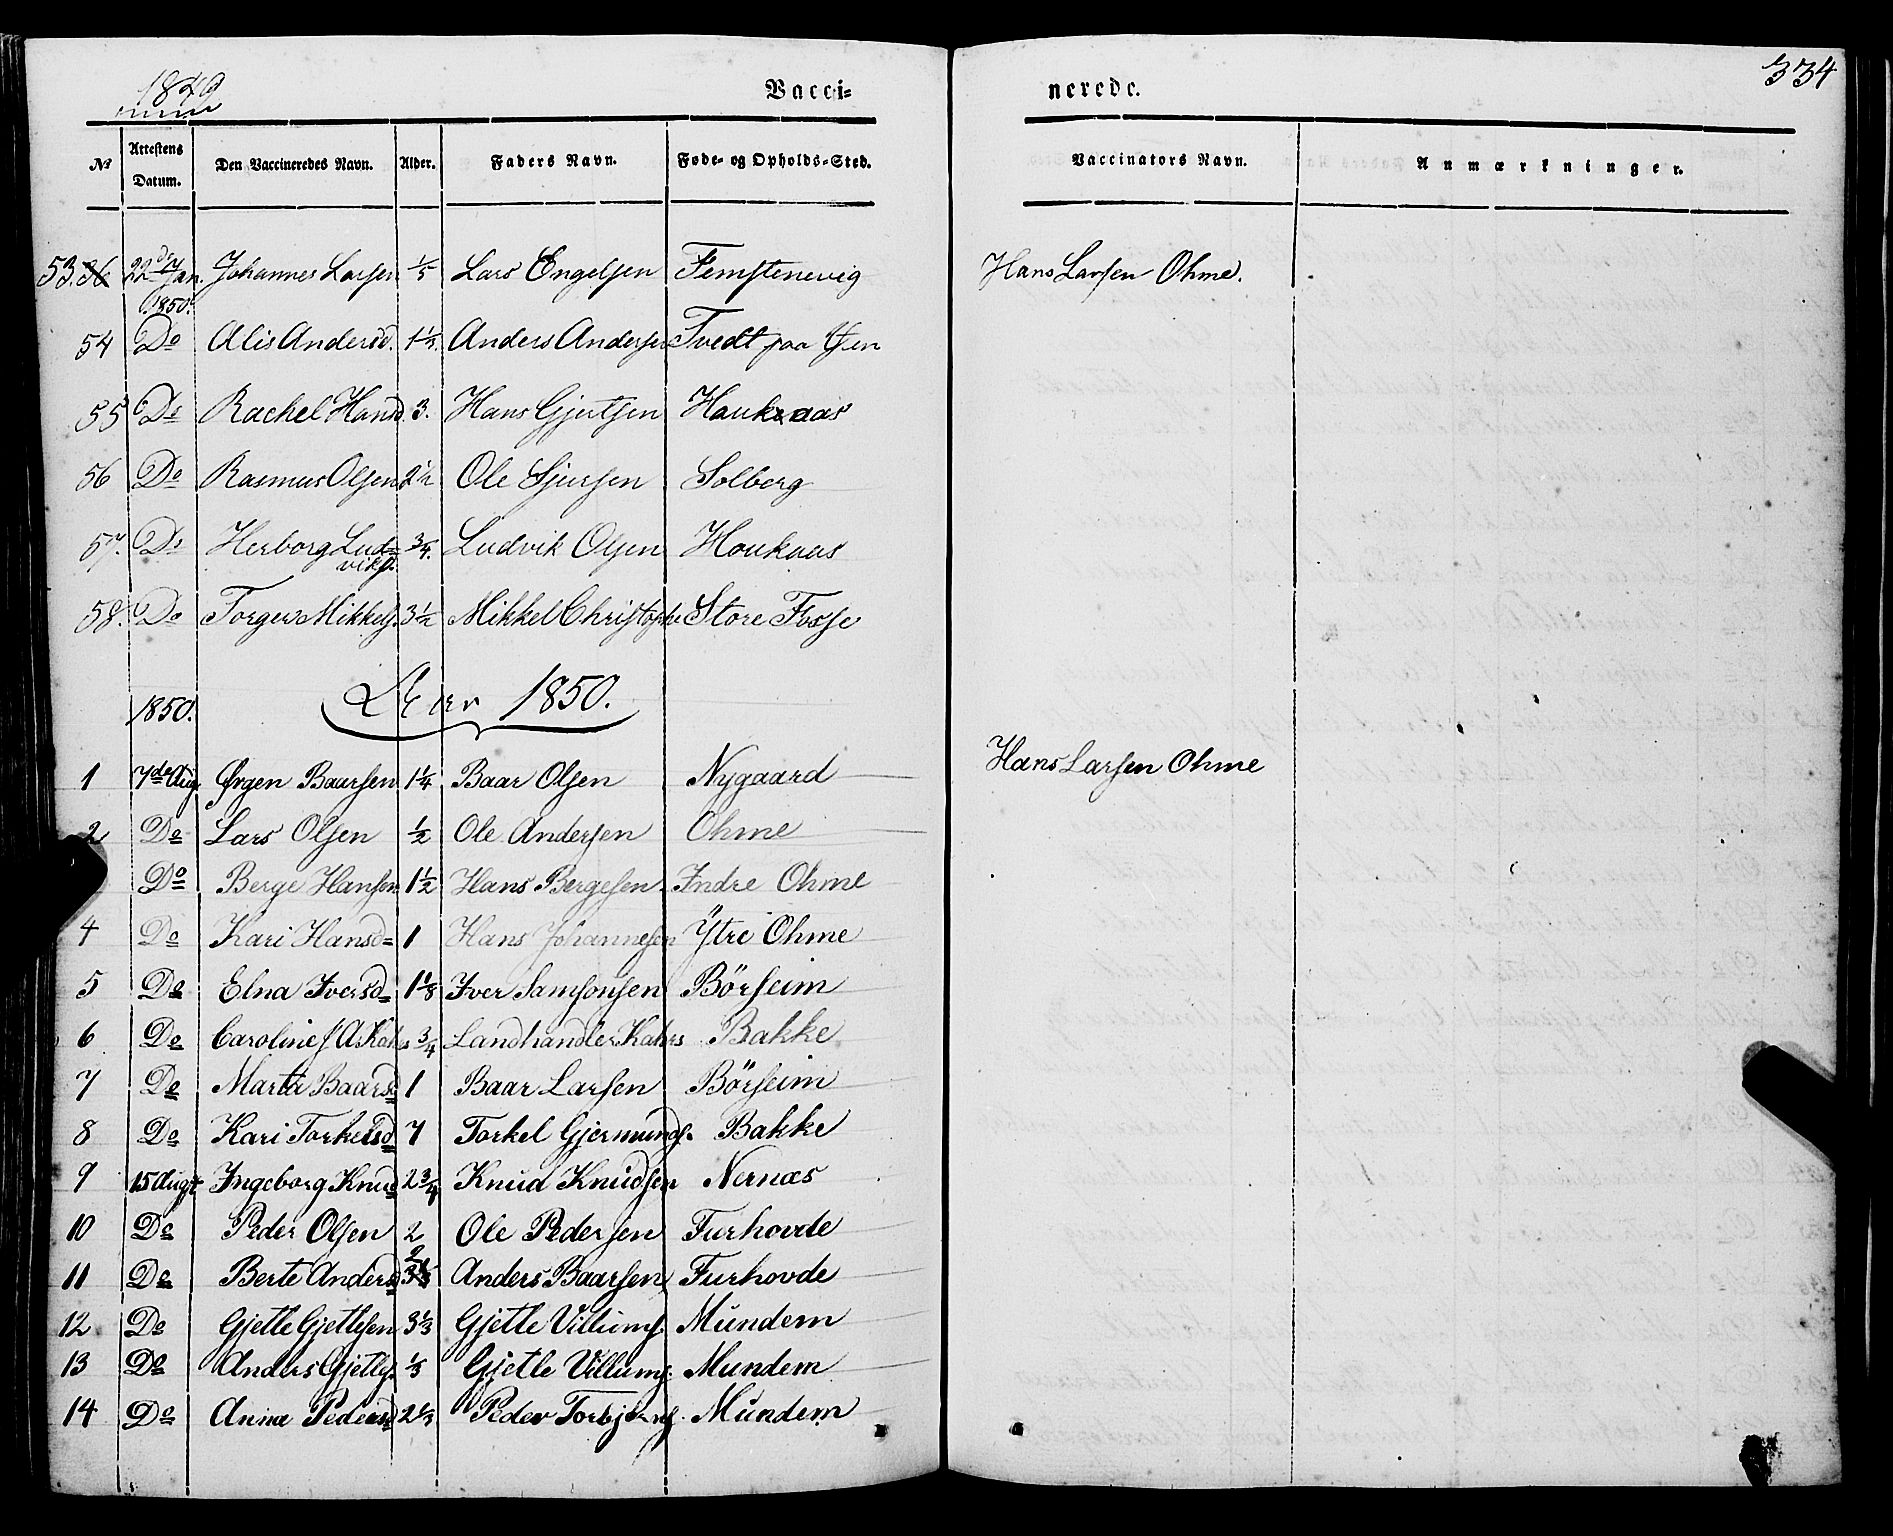 1849
Vaccinerede.
334
No Attestens Datum. Den Vaccineredes Navn. Alder. Faders Navn. Føde- og Opholds-Sted. Vaccinators Navn. Anmærkninger.
53. 22de Jan. 1850. Johannes Larsen 1/5 Lars Engelsen Femstenevig Hans Larsen Ohme.
54 Do Alis Andersd. Anders Andersen Tvedt paa
55 Do Rachel Hansd 3. Hans Gjertsen Haukaas
56 Do Rasmus Olsen 2 1/2 Ole Sjursen Solberg
57. Do Herborg Ludviksd. 3/4. Ludvik Olsen Houkaas
58. Do Torger Mikkels. 3 1/2 Mikkel Christophe Store Fosse
1850. Aar 1850.
1 7de Aug. Ørgen Baarsen 1 1/4 Baar Olsen Nygaard Hans Larsen Ohme
2 Do Lars Olsen 1/2 Ole Andersen Ohme
Do Berge Hansen 1 1/2 Hans Bergesen Indre Ohme
4 Do Kari Hansd= 1 Hans Johannesen Ytre Ohme
5 Do Elna Iversd= 1 1/8 Iver Samsonsen Börseim
6 Do Caroline A. Kahrs 3/4 Landhandler Kahrs Bakke
7 Do Marta Baarsd 1 Baar Larsen Börseim
8 Do Kari Torkelsd 7 Torkel Gjermunds. Bakke
9 15 Augt Ingeborg Knud= 2 3/4 Knud Knudsen Nernæs
10 Do Peder Olsen 2 Ole Pedersen Furhovde
11 Do Berte Anders Anders Baarsen Furhovde
12 Do Gjetle Gjetlesen 3 1/3 Gjetle Villums. Mundem
13 Do Anders Gjetles. Gjetle Villums. Mundem
14 Do Anna Pedersd Peder Torbjörns. Mundem